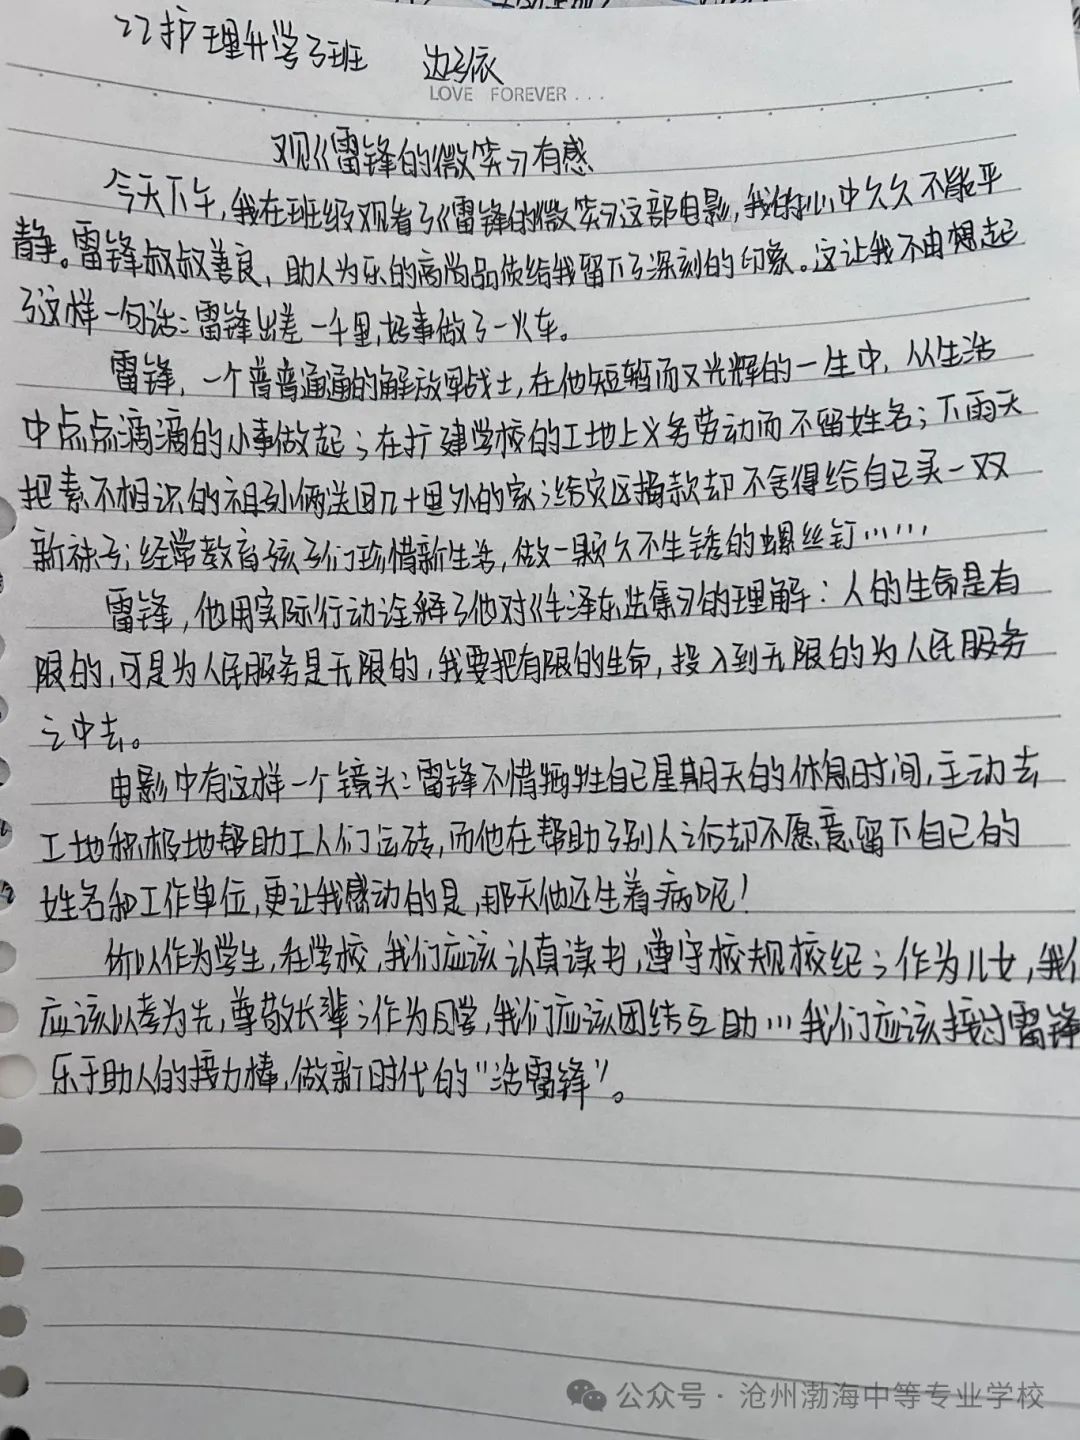 22护理升学3班 边子依
LOVE FOREVER...
观《雷锋的微笑》有感
今天下午,我在班级观看了《雷锋的微笑》这部电影,我的心中久久不能平
静。雷锋叔叔善良,助人为乐的高尚品质给我留下了深刻的印象。这让我不由想起
了这样一句话:雷锋出差一千里,好事做了一火车。
雷锋,一个普普通通的解放军战士,在他短暂而又光辉的一生中,从生活
中点点滴滴的小事做起;在扩建学校的工地上义务劳动而不留姓名;下雨天
把素不相识的祖孙俩送回几十里外的家;给灾区捐款却不舍得给自己买一双
新袜子;经常教育孩子们珍惜新生活,做一颗久不生锈的螺丝钉……
雷锋,他用实际行动诠释了他对《毛泽东选集》的理解:人的生命是有
限的,可是为人民服务是无限的,我要把有限的生命,投入到无限的为人民服务
之中去。
电影中有这样一个镜头:雷锋不惜牺牲自己星期天的休息时间,主动去
工地积极地帮助工人们运砖,而他在帮助了别人之后却不愿意留下自己的
姓名和工作单位,更让我感动的是,那天他还生着病呢!
所以作为学生,在学校,我们应该认真读书,遵守校规校纪;作为儿女,我们
应该以孝为先,尊敬长辈;作为同学,我们应该团结互助…我们应该接过雷锋
乐于助人的接力棒,做新时代的“活雷锋”。
公众号·沧州渤海中等专业学校